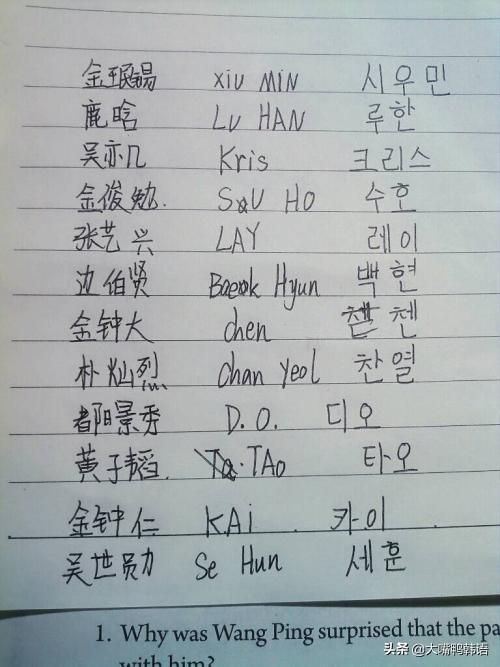 金珉锡 XiU MiN 시우민
鹿晗 LU HAN 루한
吴亦几 Kris 크리스
金俊勉. SU HO 수호
张艺兴 LAY 레이
边伯贤 Baek Hyun 백현
金钟大 chen 첸
朴灿烈 chan yeol 찬열
都景秀 D.O. 디오
黄子韬. TAO 타오
金钟仁 KAi 카이
吴世勋 Se Hun 세훈
1. Why was Wang Ping surprised that the pa
with him?
头条 @大嘴鸭韩语